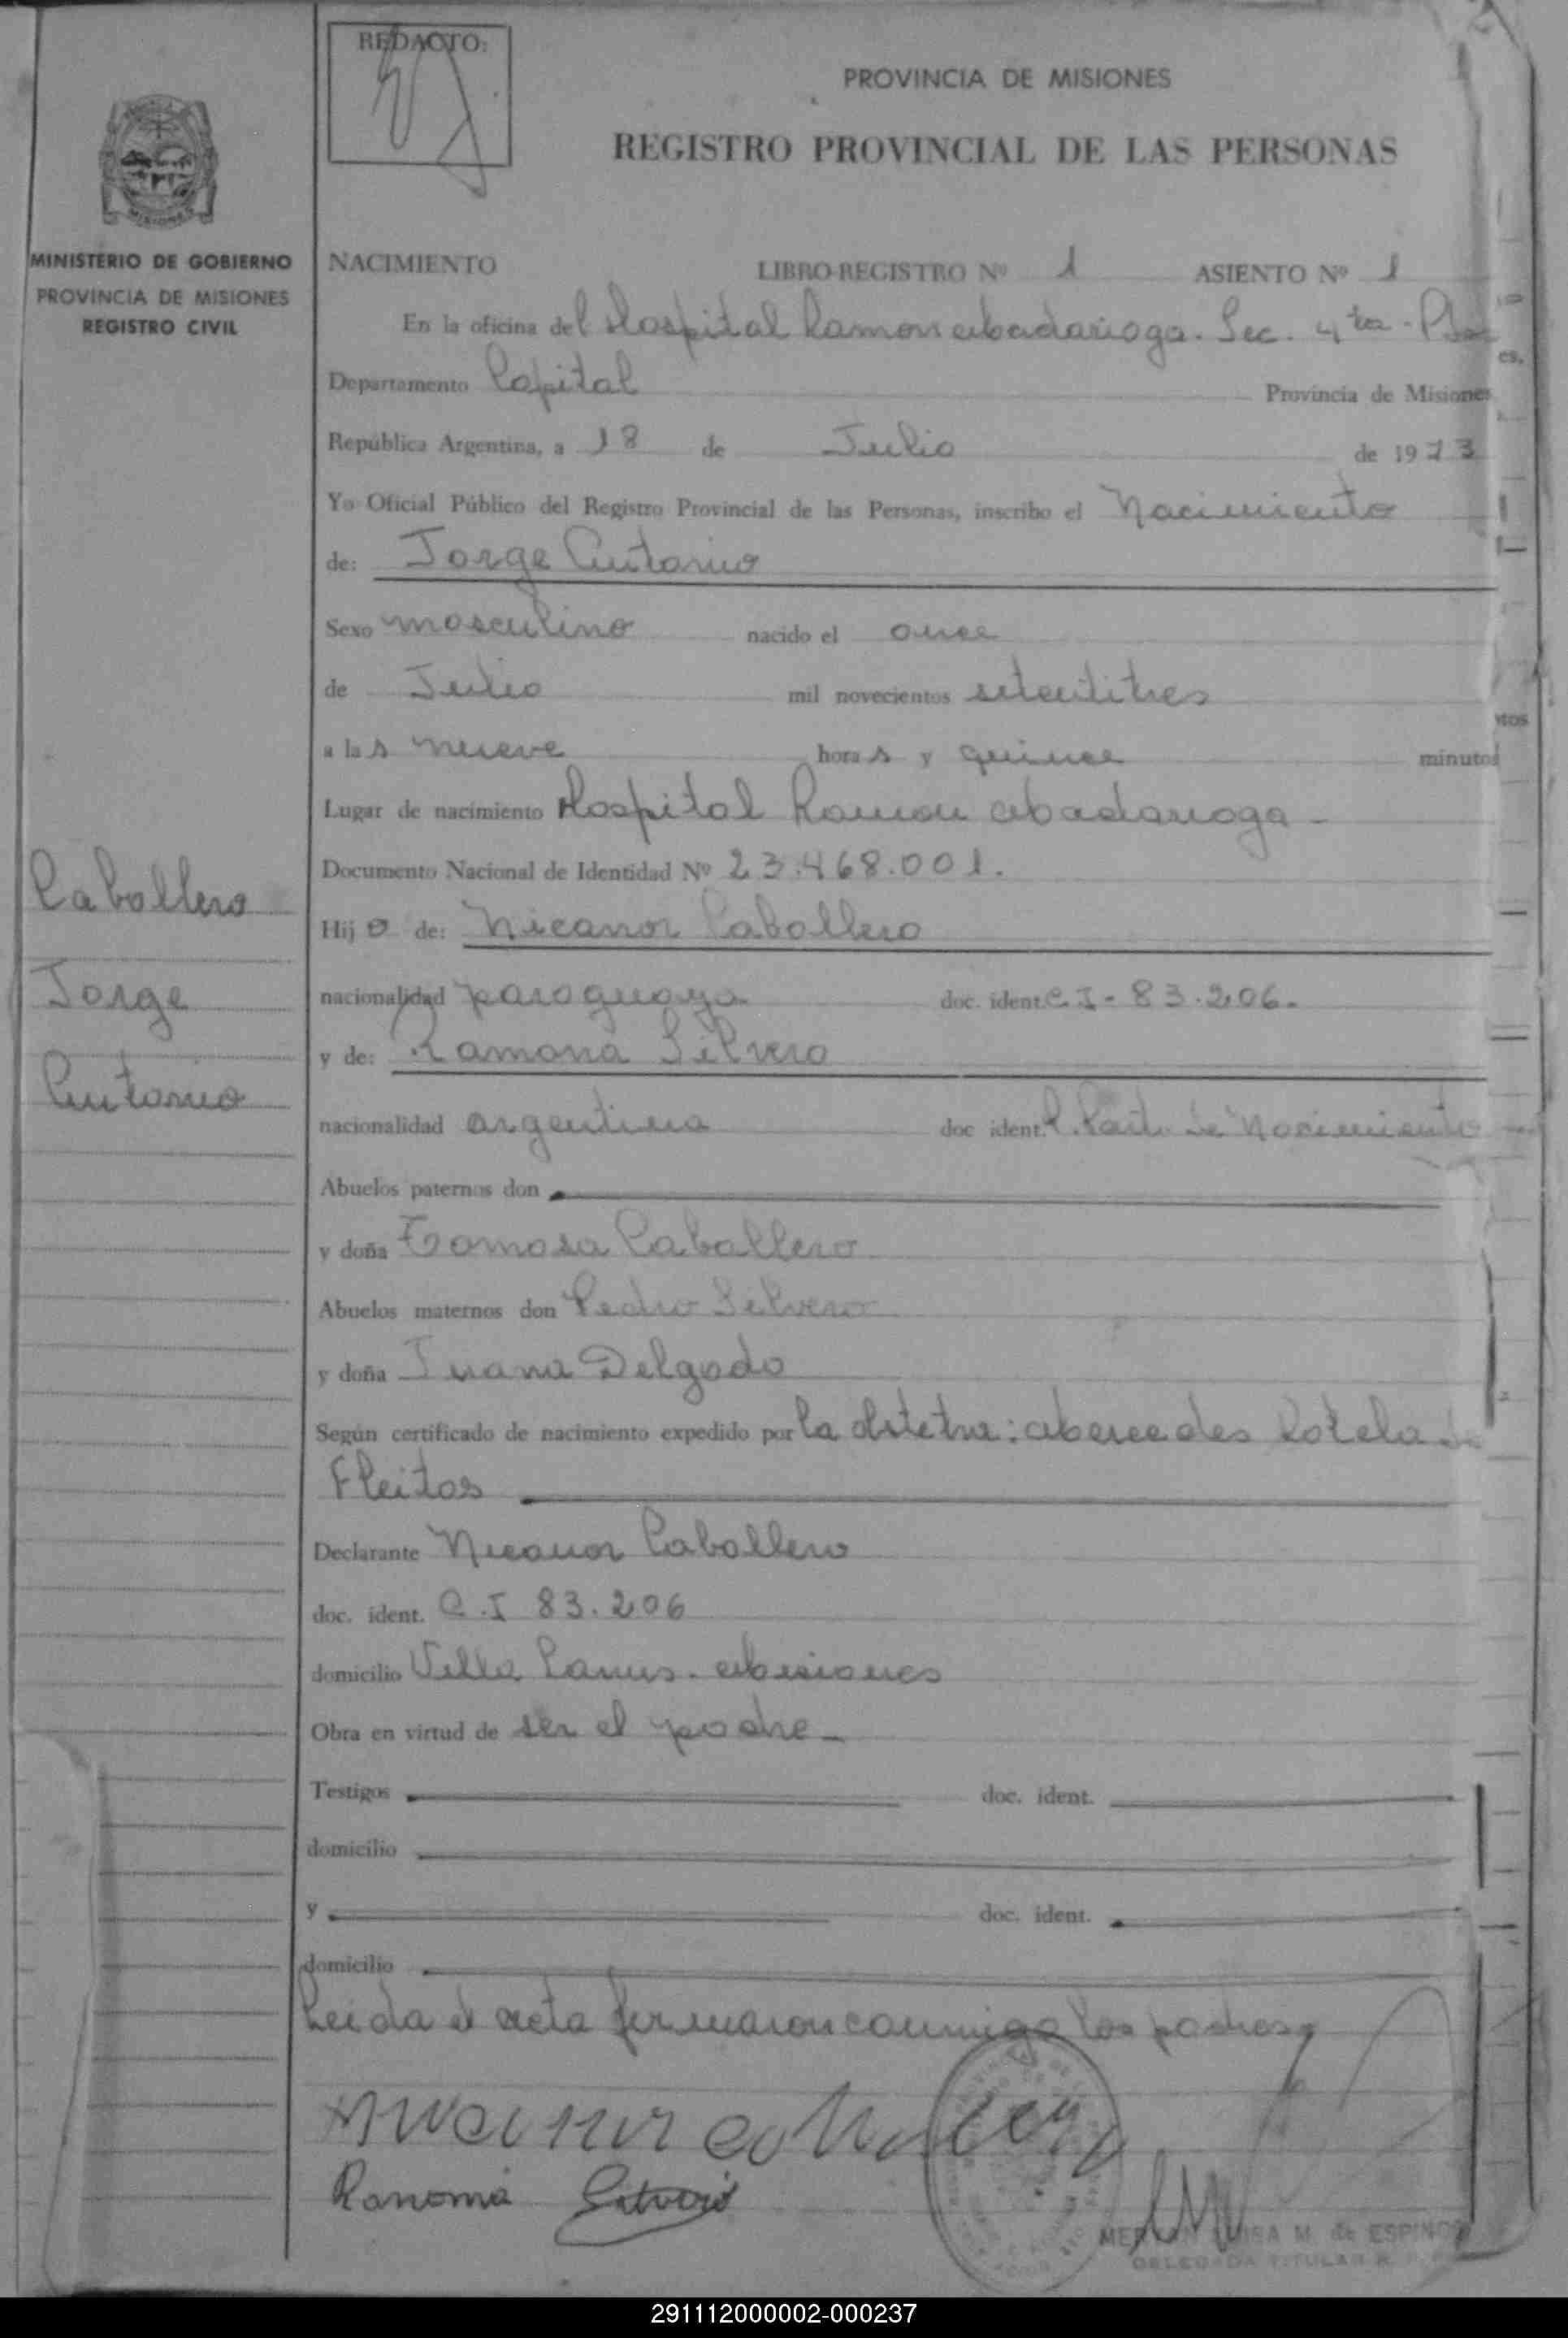 REDACTO:
PROVINCIA DE MISIONES
REGISTRO PROVINCIAL DE LAS PERSONAS
MISIONES
MINISTERIO DE GOBIERNO
PROVINCIA DE MISIONES
REGISTRO CIVIL
NACIMIENTO LIBRO-REGISTRO Nº 1 ASIENTO Nº 1
En la oficina del Hospital Ramon Madariaga. Sec. 4ta -
Departamento Capital Provincia de Misiones
República Argentina, a 18 de Julio de 1973
Yo Oficial Público del Registro Provincial de las Personas, inscribo el Nacimiento
de: Jorge Antonio
Sexo masculino nacido el once
de Julio mil novecientos setentitres
a las nueve horas y quince minutos
Lugar de nacimiento Hospital Ramon Madariaga -
Documento Nacional de Identidad Nº 23.468.001.
Hijo de: Nicanor Caballero
nacionalidad paraguaya doc. ident. C I - 83.206.
y de: Ramona Silvero
nacionalidad argentina doc ident. Nacimiento
Abuelos paternos don
y doña Tomasa Caballero
Abuelos maternos don Pedro Silvero
y doña Juana Delgado
Según certificado de nacimiento expedido por la obstetra: Mercedes Rotela de
Fleitas
Declarante Nicanor Caballero
doc. ident. C.I 83.206
domicilio Villa Lanus. Misiones
Obra en virtud de ser el padre -
Testigos doc. ident.
domicilio
y doc. ident.
domicilio
Leida el acta firmaron conmigo los padres,
Caballero
Jorge
Antonio
Ramona Silvero
LUISA M. de ESPINO
DELEGADA TITULAR R.
291112000002-000237